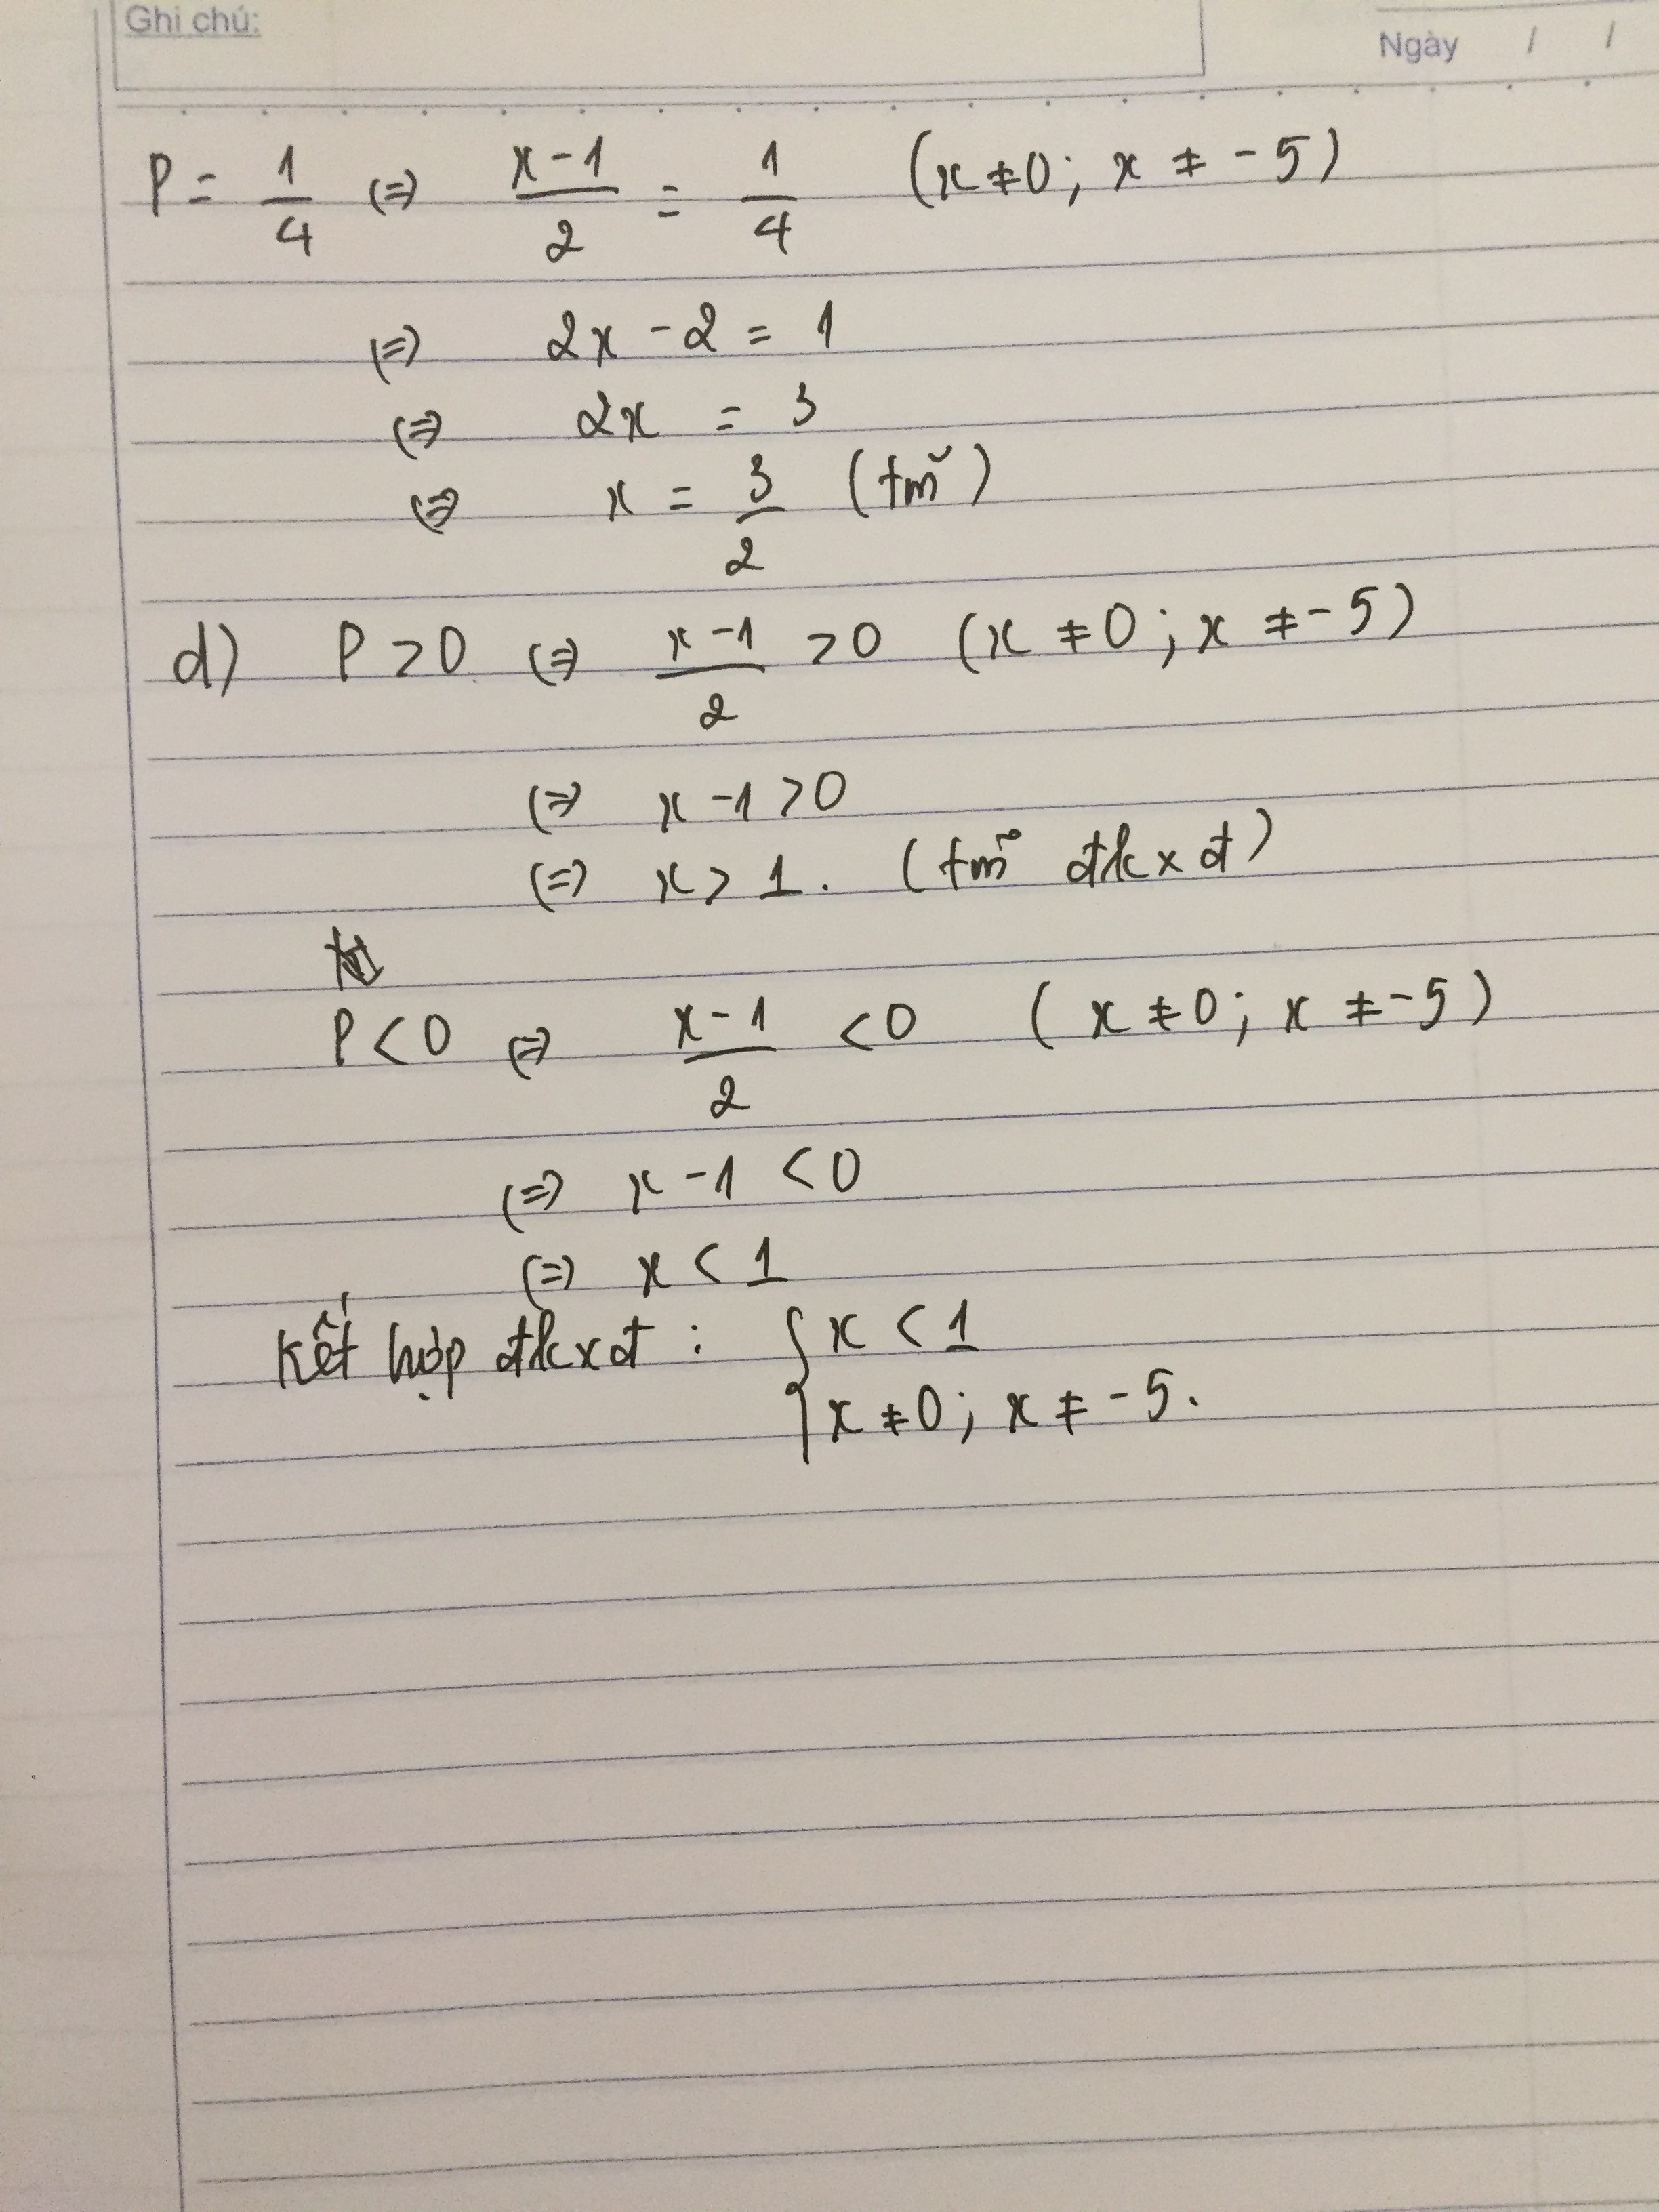 Ghi chú:
Ngày / /
P = 1/4 (=) (x-1)/2 = 1/4 (x ≠ 0; x ≠ -5)
(=) 2x - 2 = 1
(=) 2x = 3
(=) x = 3/2 (tm~)
d) P > 0 (=) (x-1)/2 > 0 (x ≠ 0; x ≠ -5)
(=) x - 1 > 0
(=) x > 1. (tm~ đkxđ)
P < 0 (=) (x-1)/2 < 0 (x ≠ 0; x ≠ -5)
(=) x - 1 < 0
(=) x < 1
Kết hợp đkxđ : { x < 1
x ≠ 0; x ≠ -5.